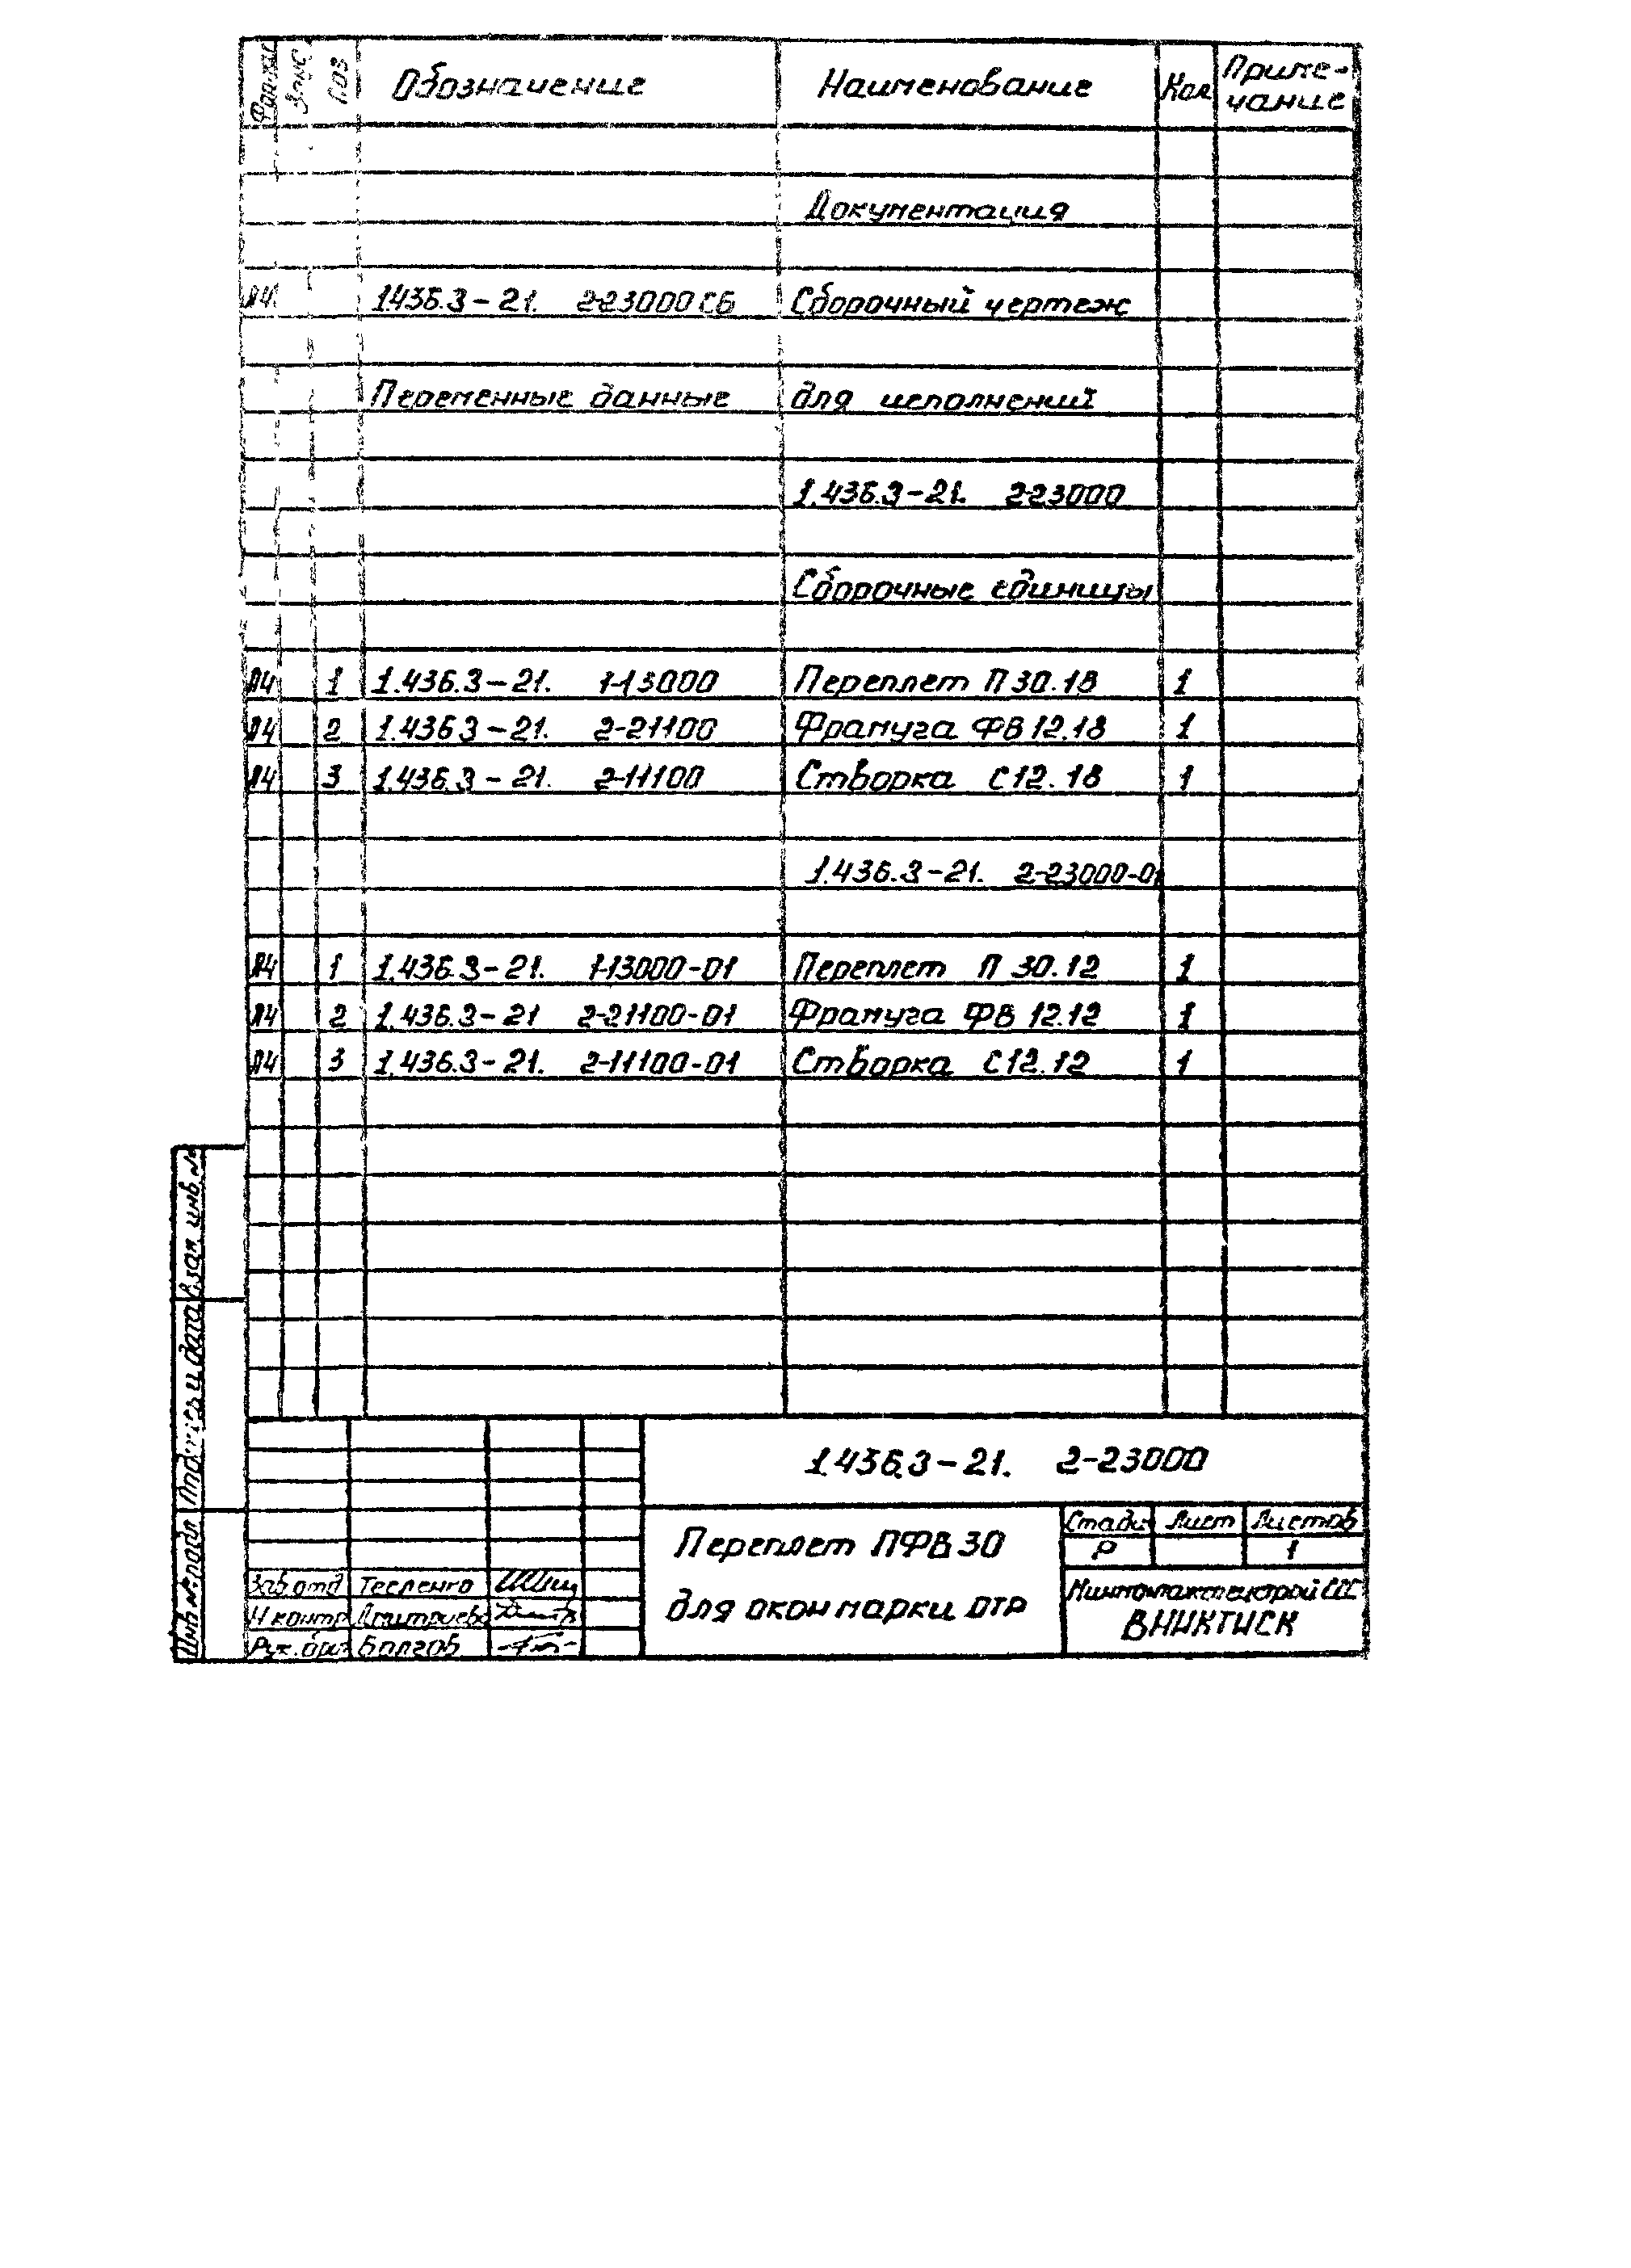 Формат Зона Поз Обозначение Наименование Кол Приме-
чание
Документация
А4 1.436.3-21. 2-23000 СБ Сборочный чертеж
Переменные данные для исполнений
1.436.3-21. 2-23000
Сборочные единицы
А4 1 1.436.3-21. 1-13000 Переплет П 30.18 1
А4 2 1.436.3-21. 2-21100 Фрамуга ФВ 12.18 1
А4 3 1.436.3-21. 2-11100 Створка С 12.18 1
1.436.3-21. 2-23000-01
А4 1 1.436.3-21. 1-13000-01 Переплет П 30.12 1
А4 2 1.436.3-21 2-21100-01 Фрамуга ФВ 12.12 1
А4 3 1.436.3-21. 2-11100-01 Створка С 12.12 1
Взам. инв. №
Подпись и дата
Инв № подл
1.436.3-21. 2-23000
Переплет ПФВ 30
для окон марки ОТР
Стадия Лист Листов
Р 1
Зав. отд Тесленко
Н контр Дмитриева
Рук. бриг Болгов
Минмонтажспецстрой СССР
ВНИКТИСК